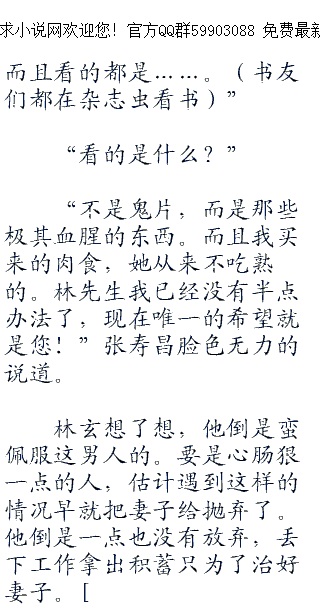 求小说网欢迎您！官方QQ群59903088 免费最新
而且看的都是……。（书友
们都在杂志虫看书）”
“看的是什么？”
“不是鬼片，而是那些
极其血腥的东西。而且我买
来的肉食，她从来不吃熟
的。林先生我已经没有半点
办法了，现在唯一的希望就
是您！”张寿昌脸色无力的
说道。
林玄想了想，他倒是蛮
佩服这男人的。要是心肠狠
一点的人，估计遇到这样的
情况早就把妻子给抛弃了。
他倒是一点也没有放弃，丢
下工作拿出积蓄只为了治好
妻子。[